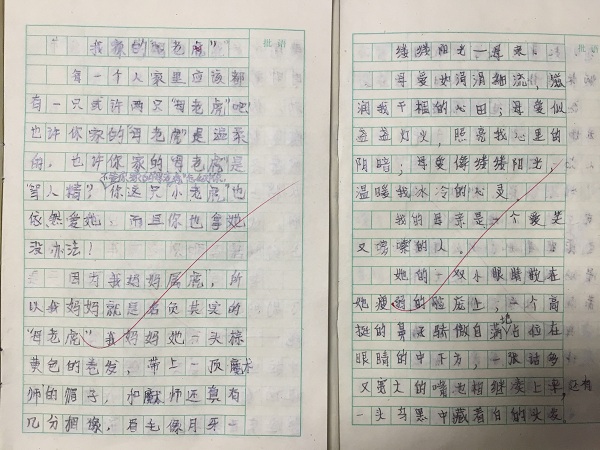 我家的"母老虎"
批语
每一个人家里应该都
有一只或许两只"母老虎"吧!
也许你家的"母老虎"是温柔
的,也许你家的"母老虎"是
"骂人精",你这只"小老虎"也
依然爱她,而且你也拿她
没办法!
因为我妈妈属虎,所
以我妈妈就是名负其实的
"母老虎"。我妈妈她一头棕
黄色的卷发,带上一顶魔术
师的帽子,和魔术师还真有
几分相像,眉毛像月牙一
缕缕阳光—母亲
批语
母爱如涓涓细流,滋
润我干枯的心田;母爱似
盏盏灯火,照亮我心里的
阴暗;母爱像缕缕阳光,
温暖我冰冷的心灵。
我的母亲是一个爱笑
又啰嗦的人。
她的一双小眼睛散在
她瘦弱的脸庞上,一个高
挺的鼻子骄傲自满地占在
眼睛的中下方,一张话多
又宽大的嘴巴相继卖上来,还有
一头乌黑中藏着白的头发,